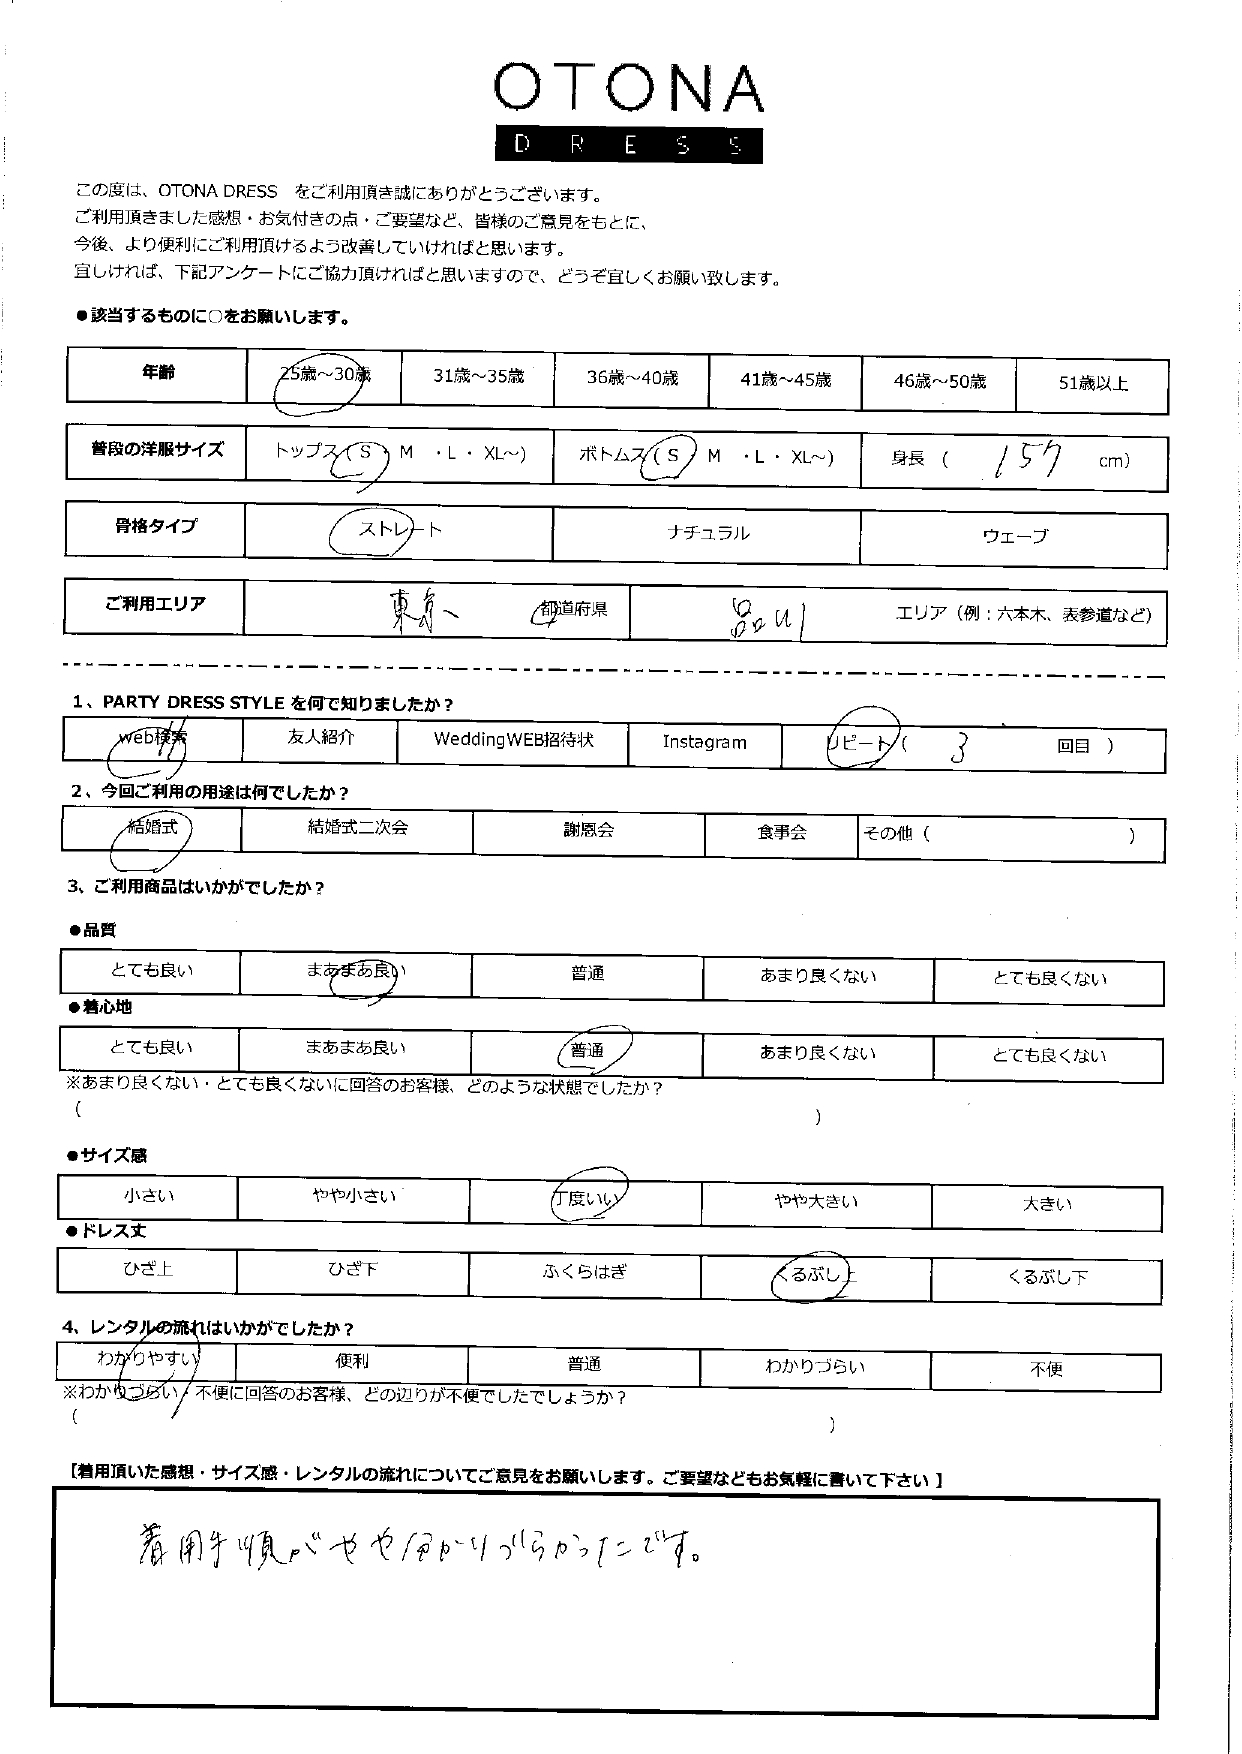 OTONA
DRESS
この度は、OTONA DRESS　をご利用頂き誠にありがとうございます。
ご利用頂きました感想・お気付きの点・ご要望など、皆様のご意見をもとに、
今後、より便利にご利用頂けるよう改善していければと思います。
宜しければ、下記アンケートにご協力頂ければと思いますので、どうぞ宜しくお願い致します。
●該当するものに○をお願いします。
年齢 25歳～30歳 31歳～35歳 36歳～40歳 41歳～45歳 46歳～50歳 51歳以上
普段の洋服サイズ トップス(S M ・L・ XL～) ボトムス(S M ・L・ XL～) 身長 ( 157 cm)
骨格タイプ ストレート ナチュラル ウェーブ
ご利用エリア 東京 都道府県 品川 エリア（例：六本木、表参道など）
1、PARTY DRESS STYLE を何で知りましたか？
web検索 友人紹介 WeddingWEB招待状 Instagram リピート( 3 回目 )
2、今回ご利用の用途は何でしたか？
結婚式 結婚式二次会 謝恩会 食事会 その他 ( )
3、ご利用商品はいかがでしたか？
●品質
とても良い まあまあ良い 普通 あまり良くない とても良くない
●着心地
とても良い まあまあ良い 普通 あまり良くない とても良くない
※あまり良くない・とても良くないに回答のお客様、どのような状態でしたか？
( )
●サイズ感
小さい やや小さい 丁度いい やや大きい 大きい
●ドレス丈
ひざ上 ひざ下 ふくらはぎ くるぶし上 くるぶし下
4、レンタルの流れはいかがでしたか？
わかりやすい 便利 普通 わかりづらい 不便
※わかりづらい/不便に回答のお客様、どの辺りが不便でしたでしょうか？
( )
【着用頂いた感想・サイズ感・レンタルの流れについてご意見をお願いします。ご要望などもお気軽に書いて下さい 】
着用手順がやや分かりづらかったです。